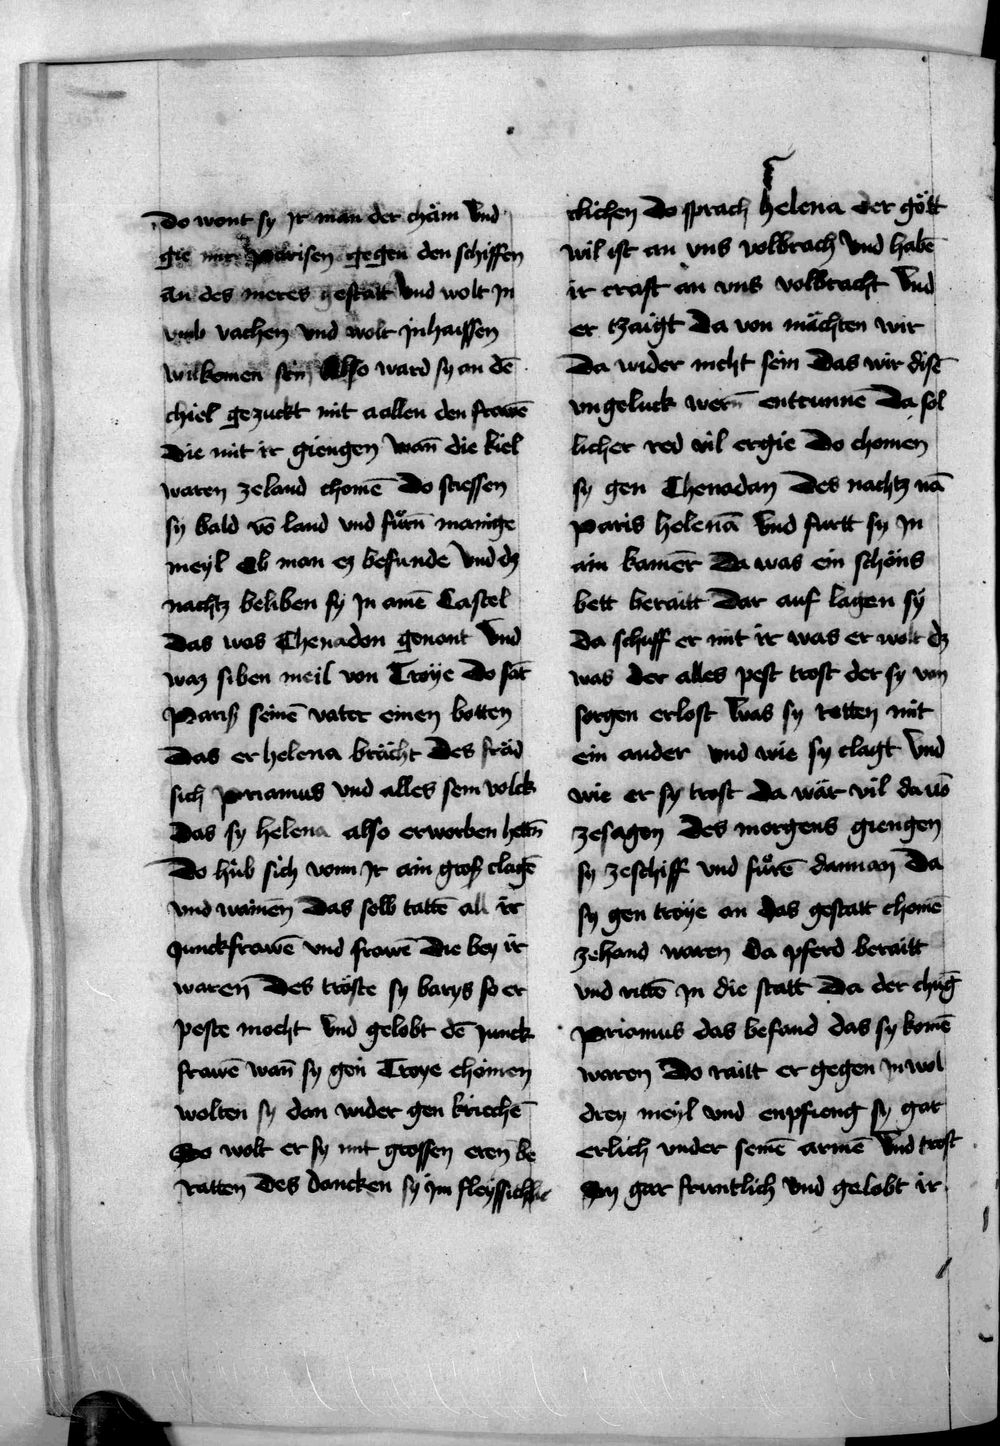 Do wont sy Jr man der chäm Vnd
gie mit parisen gegen den schiffen
an des meres gestatt Vnd wolt Jn
vmb vachen vnd wolt Jnhaissen
wilkomen sein Also ward sy an dē
chiel gezuckt mit aallen den frawē
die mit ir giengen wan̄ die kiel
waren zeland chomē Do stiessen
sy bald vō land vnd fůrn̄ manige
meyl Ob man eʒ befunde Vnd dʒ
nachtʒ beliben sy Jn amē Castel
Das was Chenadon genant Vnd
waʒ siben meil von Troye Do sāt
Pariß seinē vater einen botten
Das er helena brächt Des fräd
sich priamus vnd alles sein volck
Das sy helena also erworben hettn̄
Do hůb sich vonn Jr ain groß clagē
vnd wainen Das selb tattē all ir
Junckfrawē vnd frawē Die bey ir
waren Des tröste sy barys so er
peste mocht Vnd gelobt dē Junck
frawē wan̄ sy gen Troye chömen
wolten sy dan wider gen kriechē
So wolt er sy mit grossen eren be
ratten Des dancken sy Jm fleyssichk
clichen Do sprach helena der gött
wil ist an vns volbrach Vnd habē
ir craft an vns volbracht Vnd
er tzaigt Da von mächten wir
Da wider nicht sein Das wir disē
vngeluck wern̄ entrunnē Da sol
licher red vil ergie Do chomen
sy gen Chenadan Des nachtʒ nā
Paris helenā Vnd furtt sy Jn
ain kamer̄ Da was ein schöns
bett beraitt Dar auf lagen sÿ
da schuff er mit ir was er wolt dʒ
was der alles pest trost der sy von
sorgen erlost Was sy retten mit
ein ander vnd wie sy clagt Vnd
wie er sy trost Da wär vil da uō
zesagen Des morgens giengen
sy zeschiff vnd fůrē dannan Da
sy gen troye an das gestatt chomē
zehand waren Da pferd beraitt
vnd rittē Jn die statt Da der chūg
priamus das befand das sy komē
waren Do raitt er gegen Jn wol
drey meyl vnd enpfieng sy gar
erlich vnder seinē armē Vnd trost
Sy gar fruntlich Vnd gelobt ir